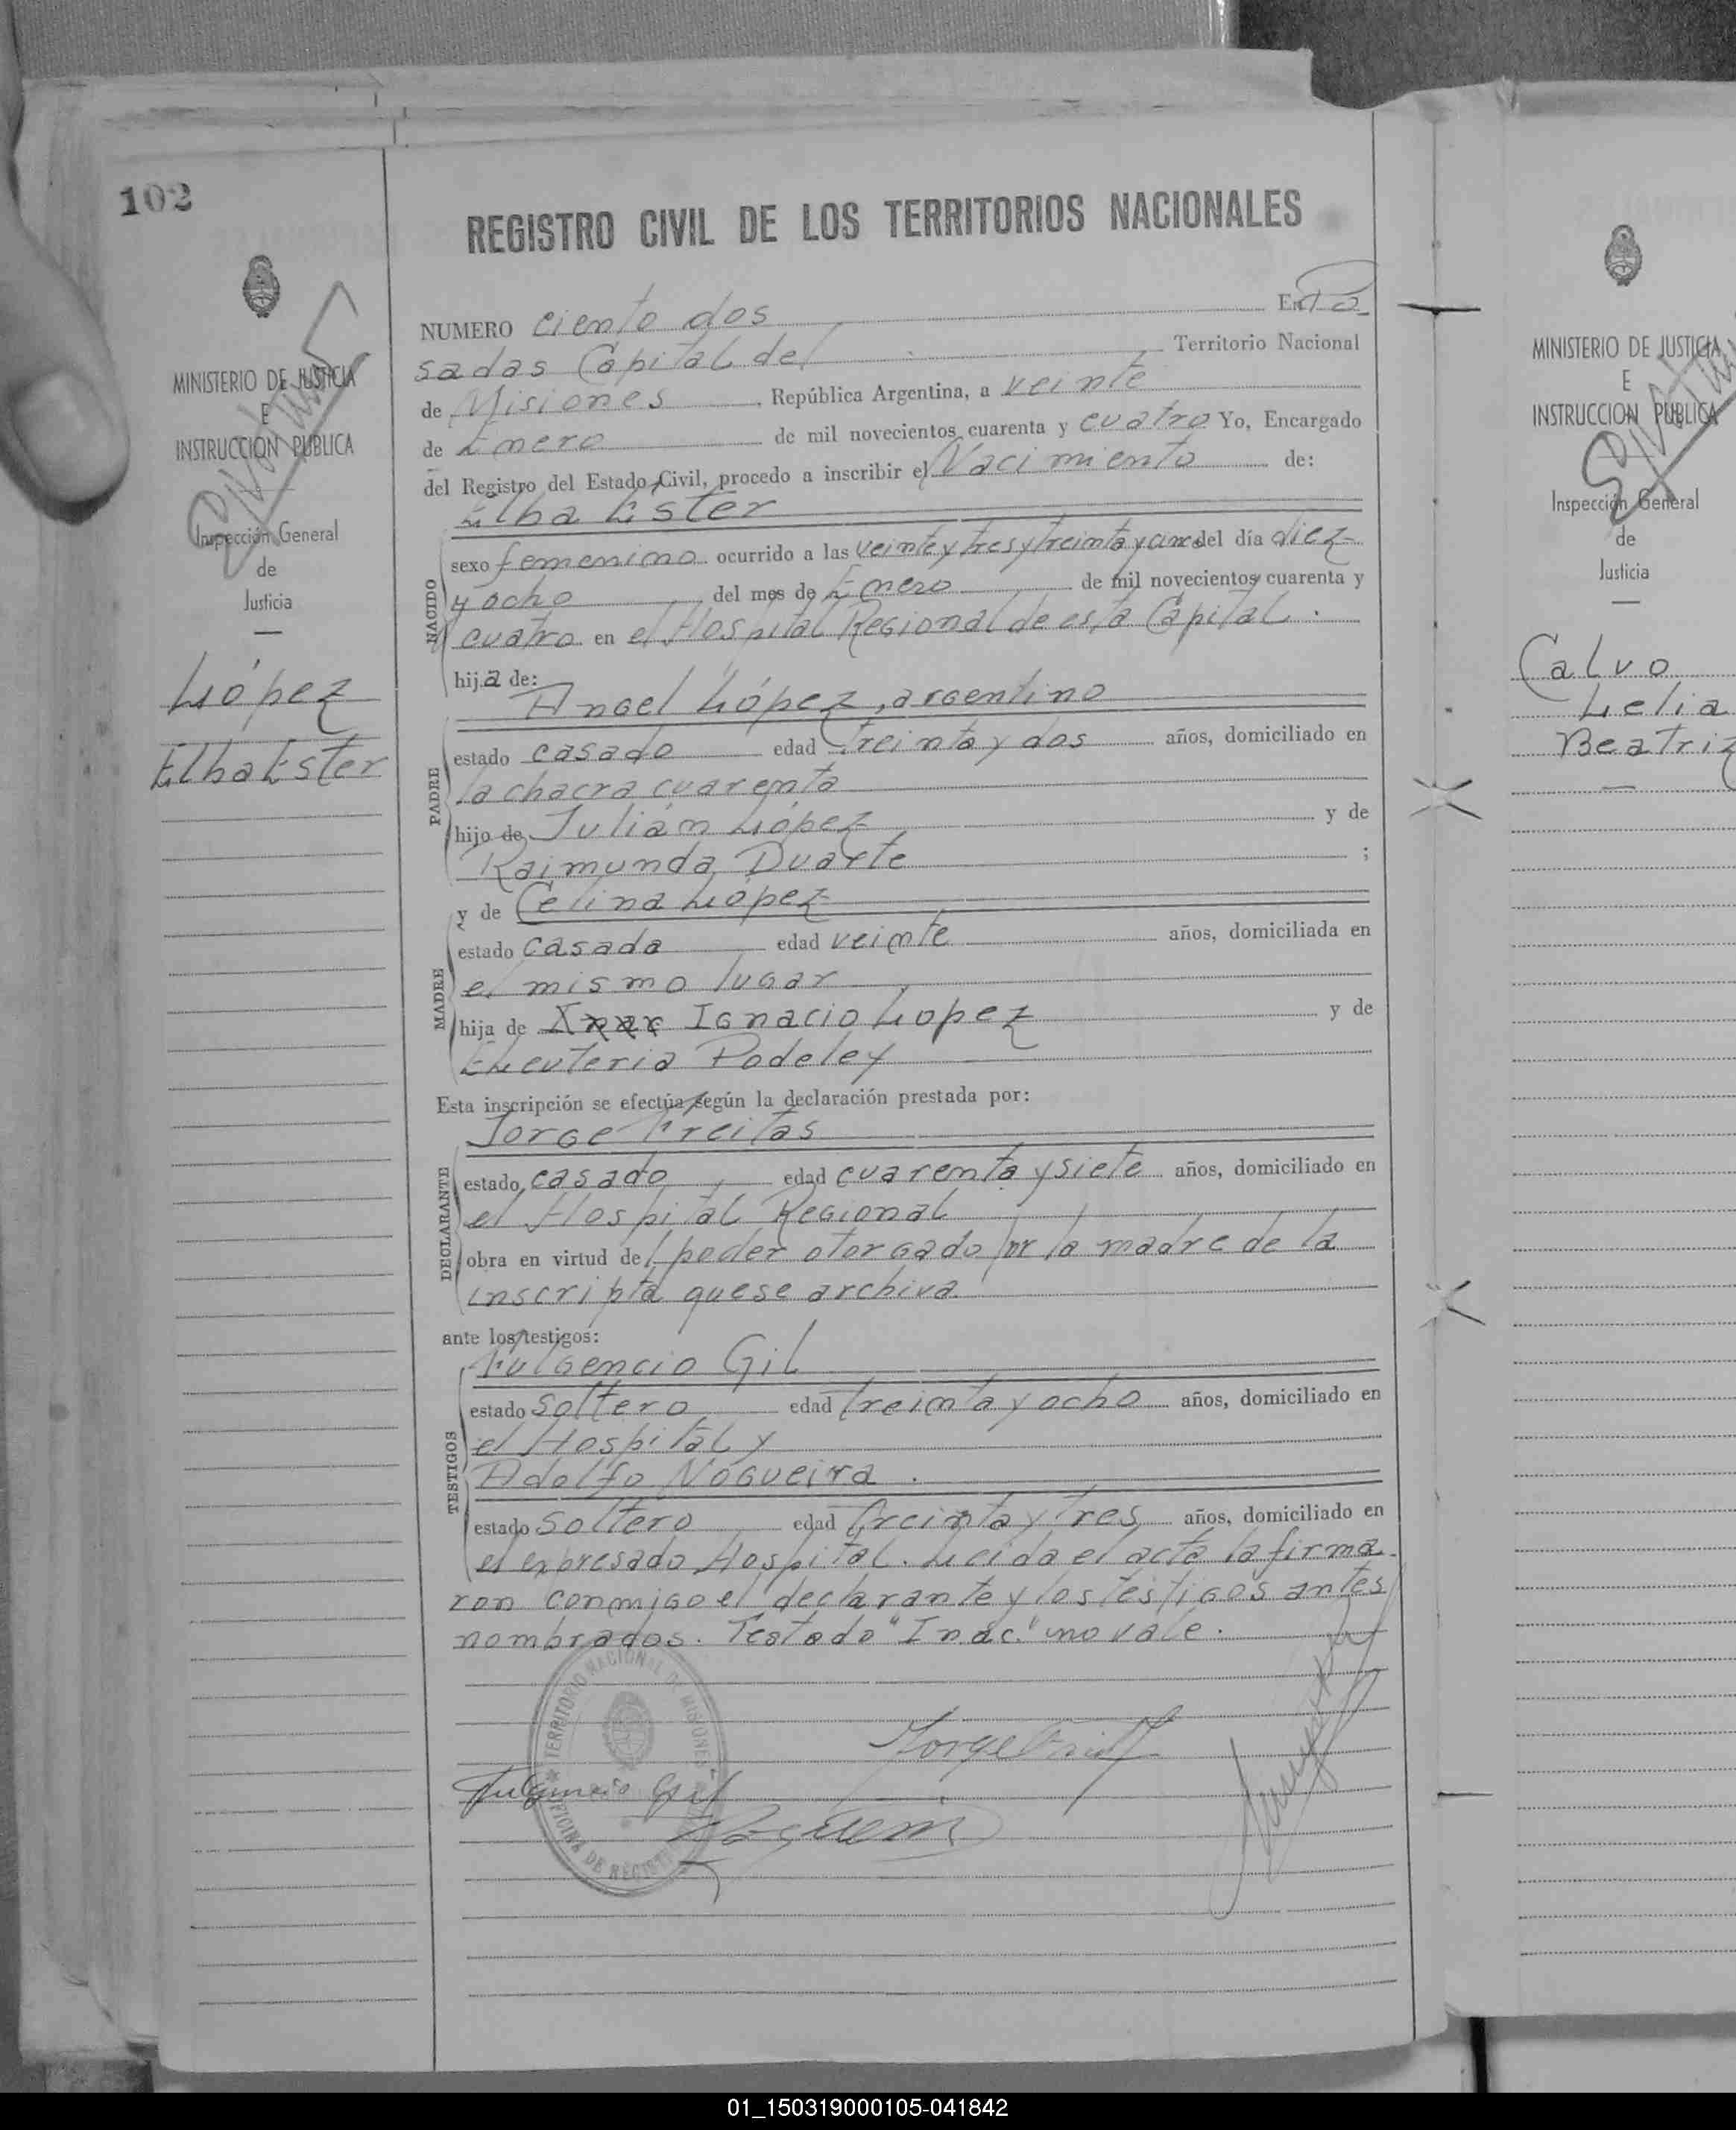 102
MINISTERIO DE JUSTICIA
E
INSTRUCCION PUBLICA
Inspección General
de
Justicia
López
Elba Ester
REGISTRO CIVIL DE LOS TERRITORIOS NACIONALES
NUMERO ciento dos En Po
sadas Capital del Territorio Nacional
de Misiones, República Argentina, a veinte
de Enero de mil novecientos cuarenta y cuatro Yo, Encargado
del Registro del Estado Civil, procedo a inscribir el Nacimiento de:
Elba Ester
NACIDO
sexo femenino ocurrido a las veinte y tres y treinta y cinco del día diez
y ocho del mes de Enero de mil novecientos cuarenta y
cuatro en el Hospital Regional de esta Capital.
hija de:
Angel López, argentino
PADRE
estado casado edad treinta y dos años, domiciliado en
la chacra cuarenta
hijo de Julián López y de
Raimunda Duarte ;
y de Celina López
MADRE
estado casada edad veinte años, domiciliada en
el mismo lugar
hija de Ignacio López y de
Eleuteria Podeley
Esta inscripción se efectúa según la declaración prestada por:
Jorge Freitas
DECLARANTE
estado casado edad cuarenta y siete años, domiciliado en
el Hospital Regional
obra en virtud del poder otorgado por la madre de la
inscripta que se archiva.
ante los testigos:
Fulgencio Gil
TESTIGOS
estado soltero edad treinta y ocho años, domiciliado en
el Hospital y
Adolfo Nogueira.
estado soltero edad treinta y tres años, domiciliado en
el expresado Hospital. Leída el acta la firma-
ron conmigo el declarante y los testigos antes
nombrados. Testado "Inac." no vale.
TERRITORIO NACIONAL DE MISIONES
OFICINA DE REGISTRO
Fulgencio Gil
MINISTERIO DE JUSTICIA
E
INSTRUCCION PUBLICA
Inspección General
de
Justicia
Calvo
Lelia
Beatriz
01_150319000105-041842